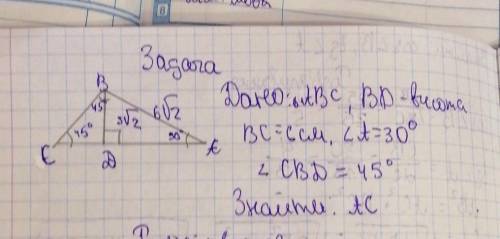 Задача
Дано: ΔABC, BD - висота
BC = 6 см, ∠A = 30°
∠ CBD = 45°
Знайти. AC
B
45°
3√2
6√2
45°
30°
C
D
A